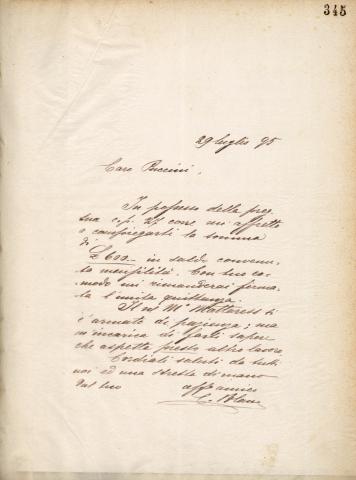 345
29 luglio 95
Caro Puccini,
In possesso della preg.
tua c.p. 27 corr. mi affretto
a compiegarti la somma
di £ 600.- in saldo convenu-
ta mensilità. Con tuo co-
modo mi rimanderai firma-
ta l'unita quittanza.
Il n/ M.º
è armato di pazienza; ma
m'incarica di farti sapere
che aspetta presto altro lavoro.
Cordiali saluti da tutti
noi ed una stretta di mano
dal tuo aff. amico
C. Blanc